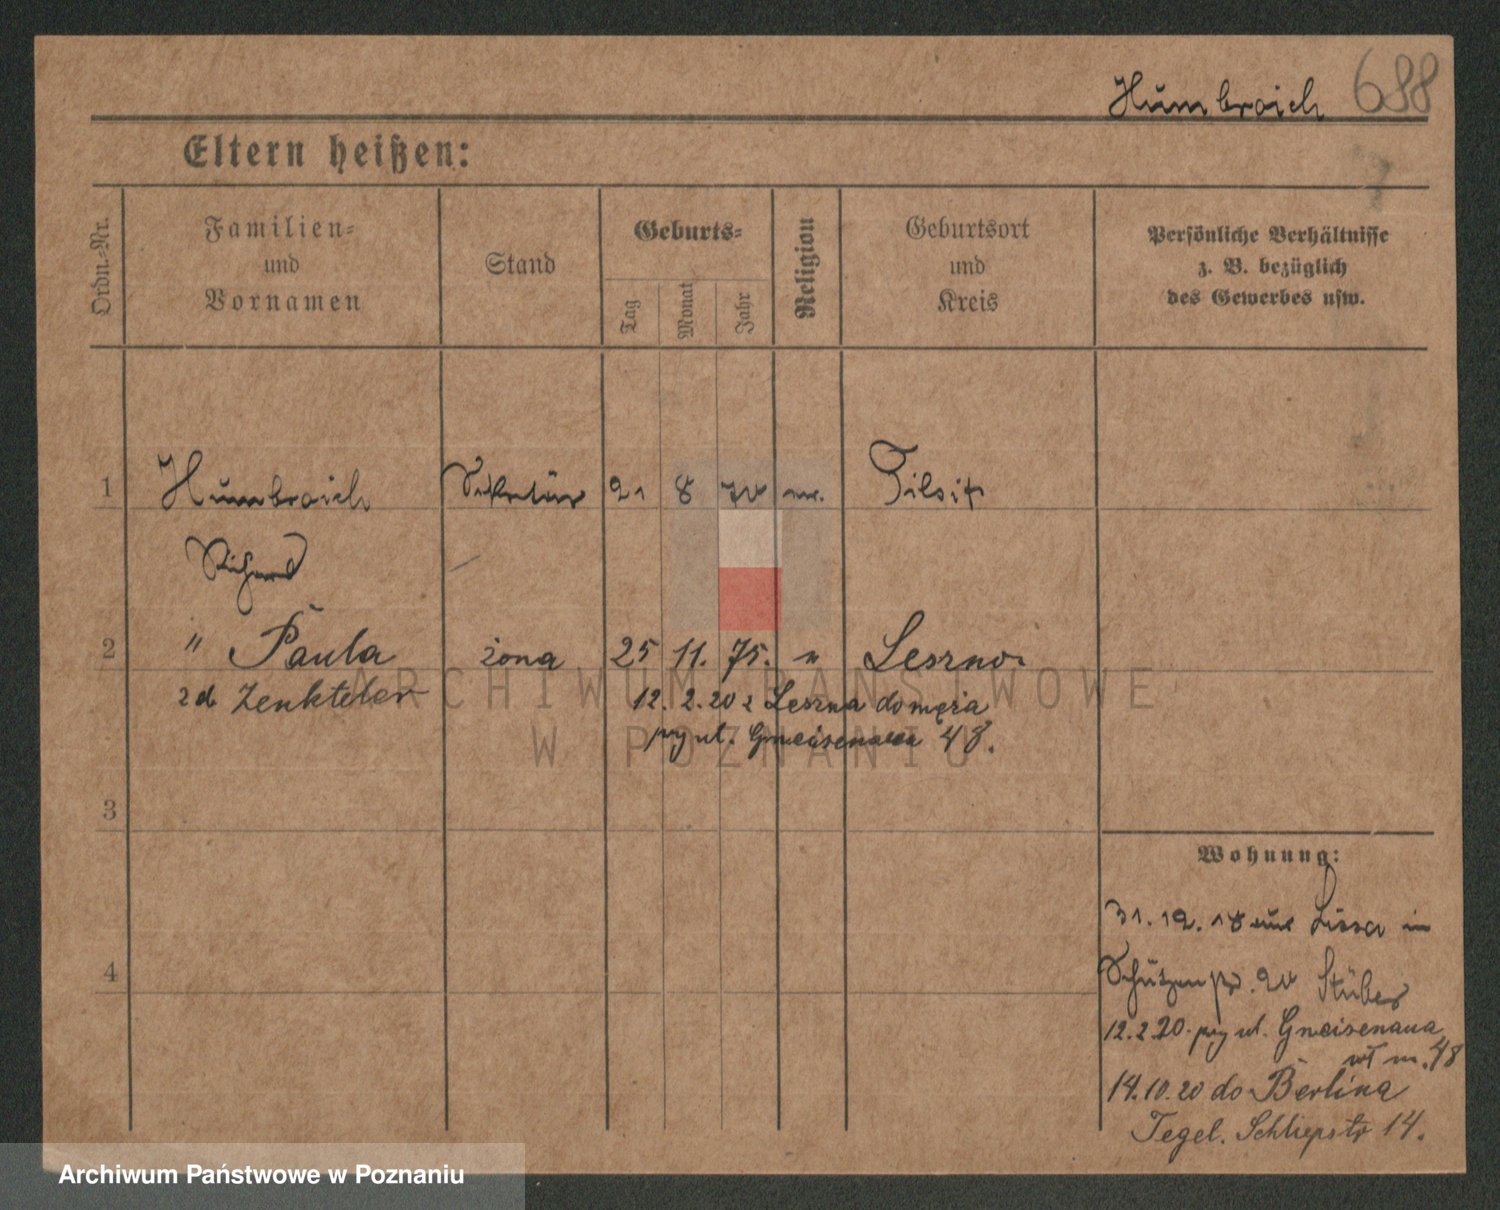 Humbroich 688
Eltern heißen:
Ordn.-Nr.
Familien-
und
Vornamen
Stand
Geburts-
Tag
Monat
Jahr
Religion
Geburtsort
und
Kreis
Persönliche Verhältnisse
z. B. bezüglich
des Gewerbes usw.
1 Humbroich Sekretär 21 8 70 Tilsit
Richard
2 " Paula żona 25 11. 75. " Leszno
zd Zenkteler 12. 2. 20 z Leszna do męża
przy ul. Gneisenaua 48.
3
4
Wohnung:
31. 12. 18 aus Lissa in
Schützenstr. 20 Stüber
12.2.20. przy ul. Gneisenaua
wł m. 48
14.10.20 do Berlina
Tegel. Schliepstr 14.
ARCHIWUM PAŃSTWOWE
W POZNANIU
Archiwum Państwowe w Poznaniu